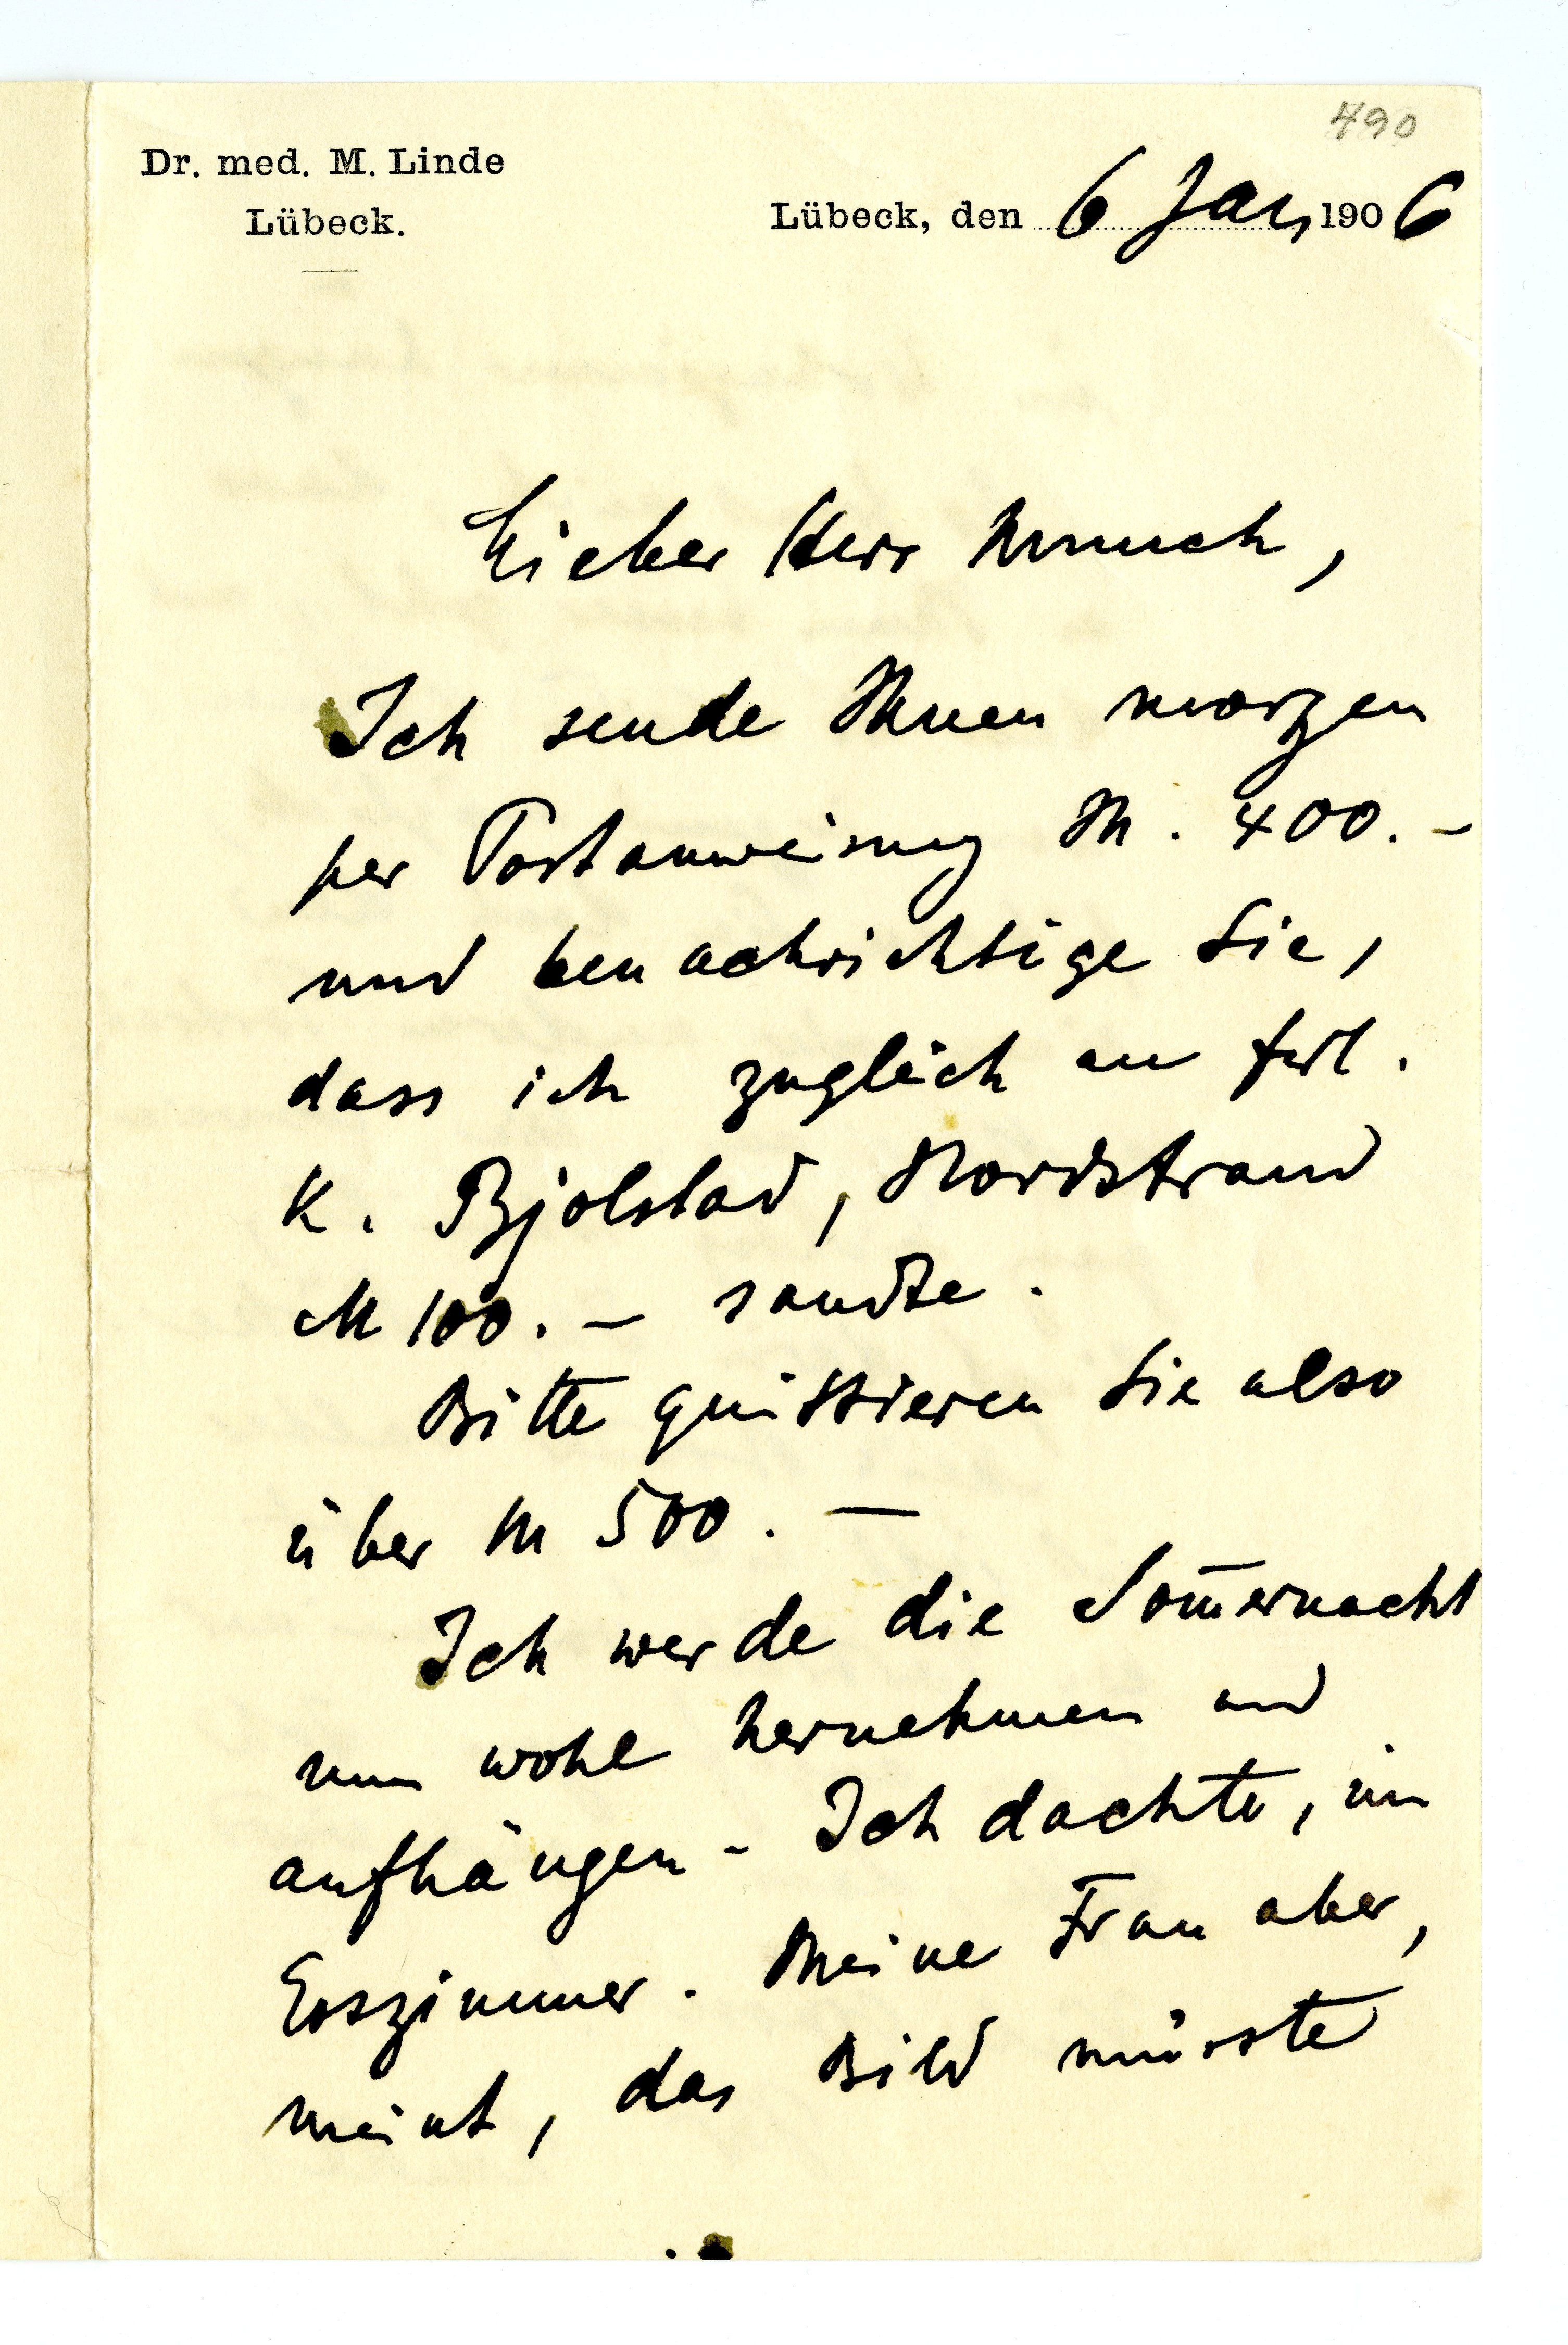 490
Dr. med. M. Linde
Lübeck.
Lübeck, den 6 Jan, 1906
Lieber Herr Munch,
Ich sende Ihnen morgen
per Postanweisung M. 400.–
und benachrichtige Sie,
dass ich zugleich an Frl.
K. Bjolstad, Nordstrand
M 100.– sandte.
Bitte quittieren Sie also
über M 500.–
Ich werde die Som̅ernacht
nun wohl hernehmen und
aufhängen – Ich dachte, im
Esszimmer. Meine Frau aber,
meint, das Bild müsste